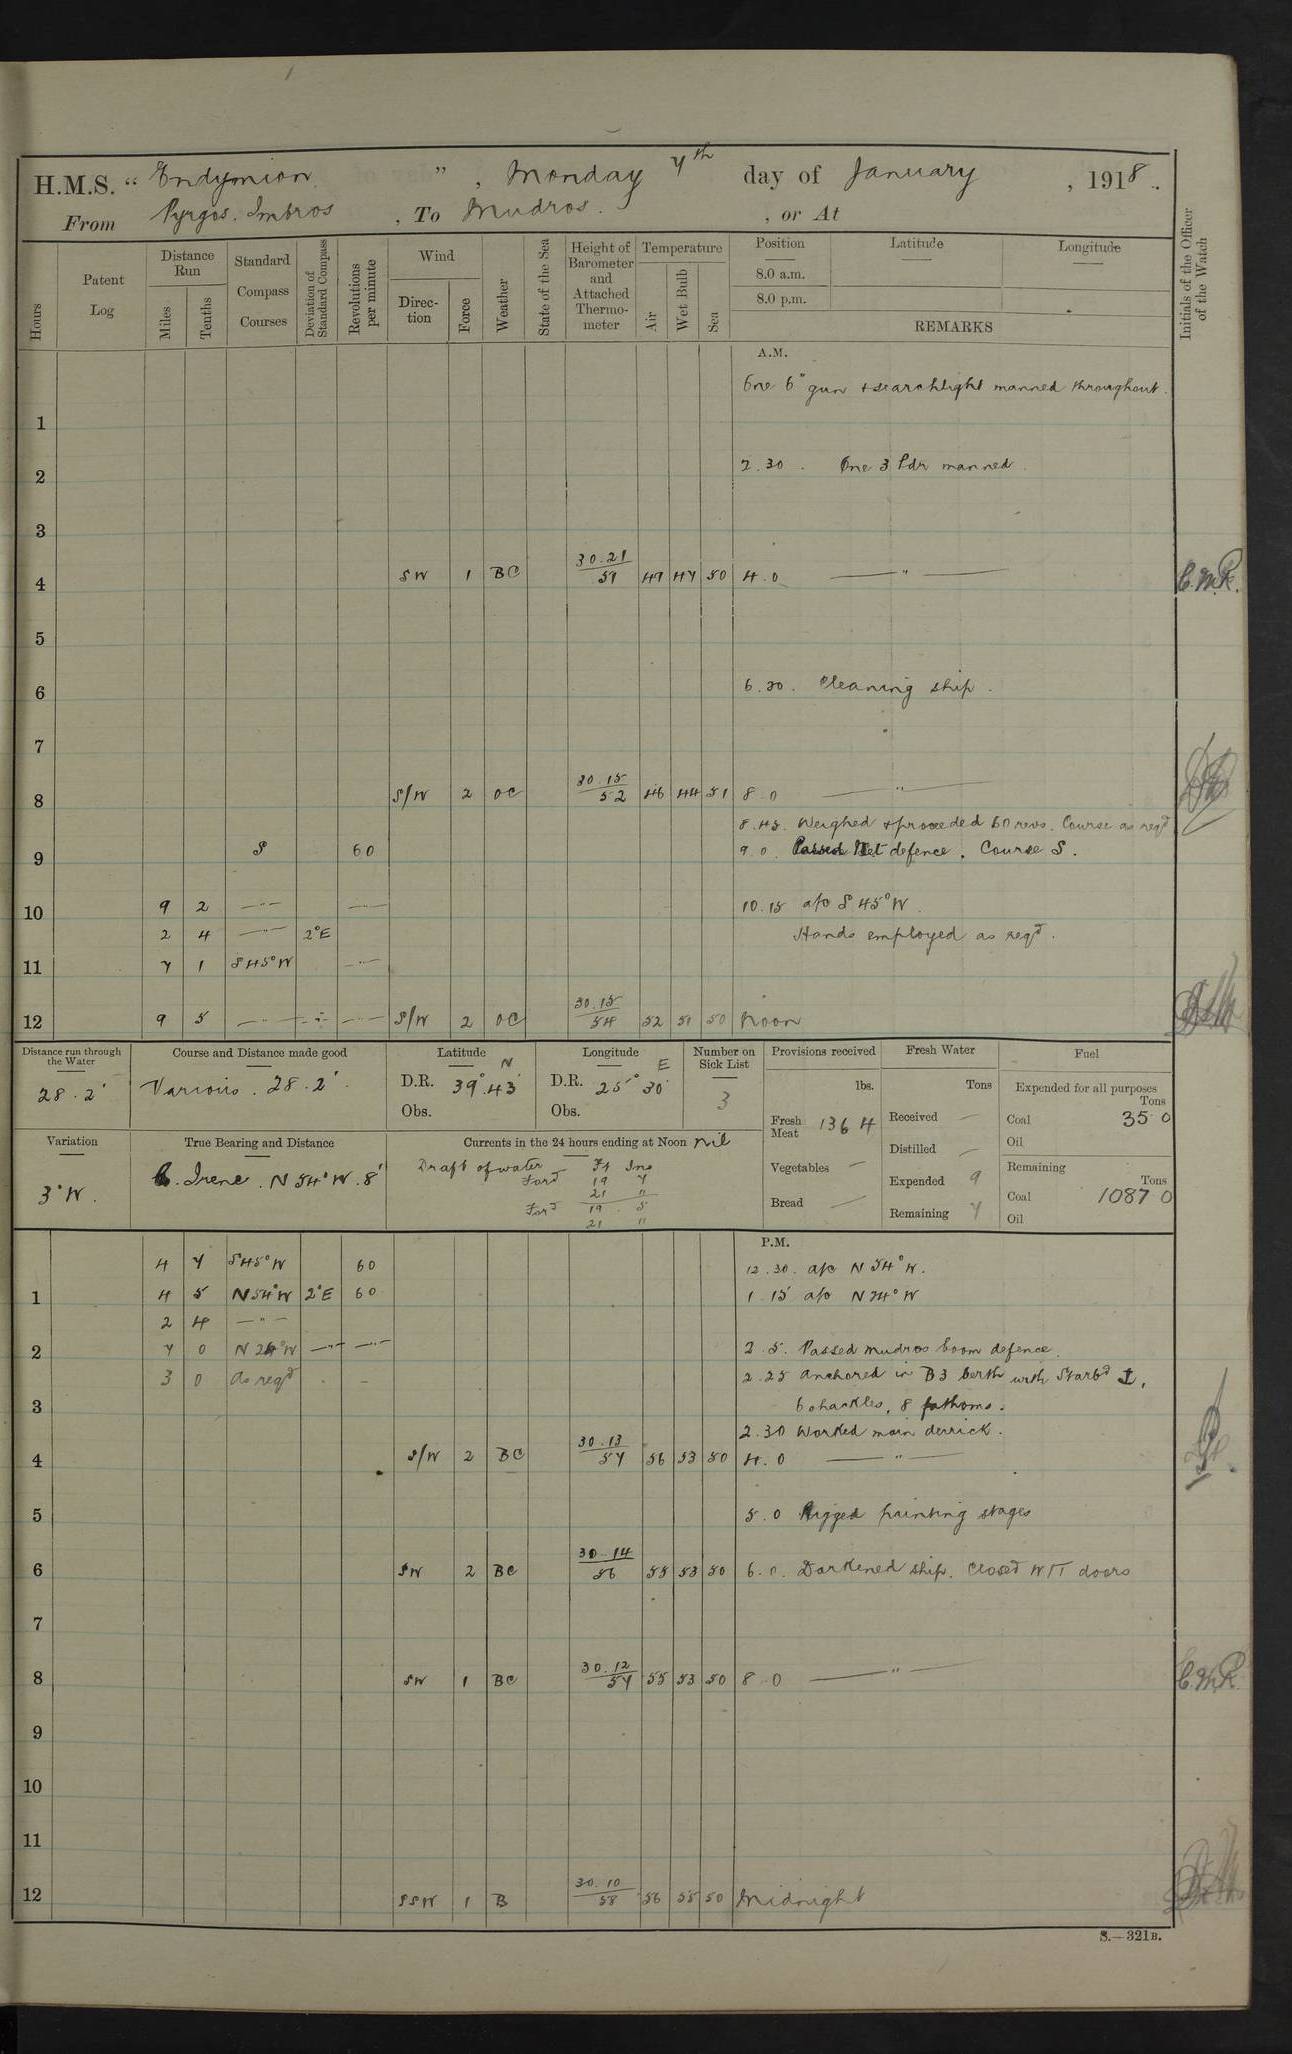 H.M.S. "Endymion", Monday 7th day of January, 1918.
From Pyrgos. Imbros, To Mudros., or At
Hours Patent Log Distance Run Miles Tenths Standard Compass Courses Deviation of Standard Compass Revolutions per minute Wind Direction Force Weather State of the Sea Height of Barometer and Attached Thermometer Temperature Air Wet Bulb Sea Position 8.0 a.m. 8.0 p.m. Latitude Longitude
REMARKS
Initials of the Officer of the Watch
A.M.
One 6" gun + searchlight manned throughout.
1
2.30. One 3 Pdr manned.
2
3
4 SW 1 BC 30.21 49 47 50 4.0 — " — C.M.R.
5
6 6.30. Cleaning ship.
7
8 S/W 2 OC 30.15 52 46 44 51 8.0 — " —
8.45. Weighed + proceeded 60 revs. Course as reqd
9 S 60 9.0. Passed Net defence. Course S.
10 9 2 — " — — " — 10.15 a/c S 45° W.
2 4 — " — 2°E Hands employed as reqd.
11 7 1 S45°W — " —
12 9 5 — " — — " — — " — S/W 2 OC 30.15 54 52 51 50 Noon
Distance run through the Water
28.2'
Course and Distance made good
Various. 28.2'.
Latitude N
D.R. 39°.43'
Obs.
Longitude E
D.R. 25° 30'
Obs.
Number on Sick List
3
Provisions received
lbs.
Fresh Meat 1364
Vegetables —
Bread —
Fresh Water
Tons
Received —
Distilled —
Expended 9
Remaining 7
Fuel
Expended for all purposes
Tons
Coal 35 0
Oil
Remaining
Tons
Coal 1087 0
Oil
Variation
3°W.
True Bearing and Distance
C. Irene. N 54° W. 8'
Currents in the 24 hours ending at Noon nil
Draft of water Ft Ins
Ford 19 7
21 "
Ford 19 5
21 "
P.M.
4 7 S45°W 60 12.30. a/c N 54° W.
1 4 5 N54°W 2°E 60 1.15 a/c N 24° W
2 4 — " —
2 7 0 N 24°W — " — — " — 2.5. Passed Mudros boom defence.
3 0 As reqd 2.25 Anchored in B3 berth with Starbd ⚓,
3 6 shackles, 8 fathoms.
2.30 Worked main derrick.
4 S/W 2 BC 30.13 57 56 53 50 4.0 — " —
5 5.0 Rigged painting stages
6 SW 2 BC 30.14 56 55 53 50 6.0. Darkened ship. Closed W/T doors
7
8 SW 1 BC 30.12 57 55 53 50 8.0 — " — C.M.R.
9
10
11
12 SSW 1 B 30.10 58 56 55 50 Midnight
S.—321B.